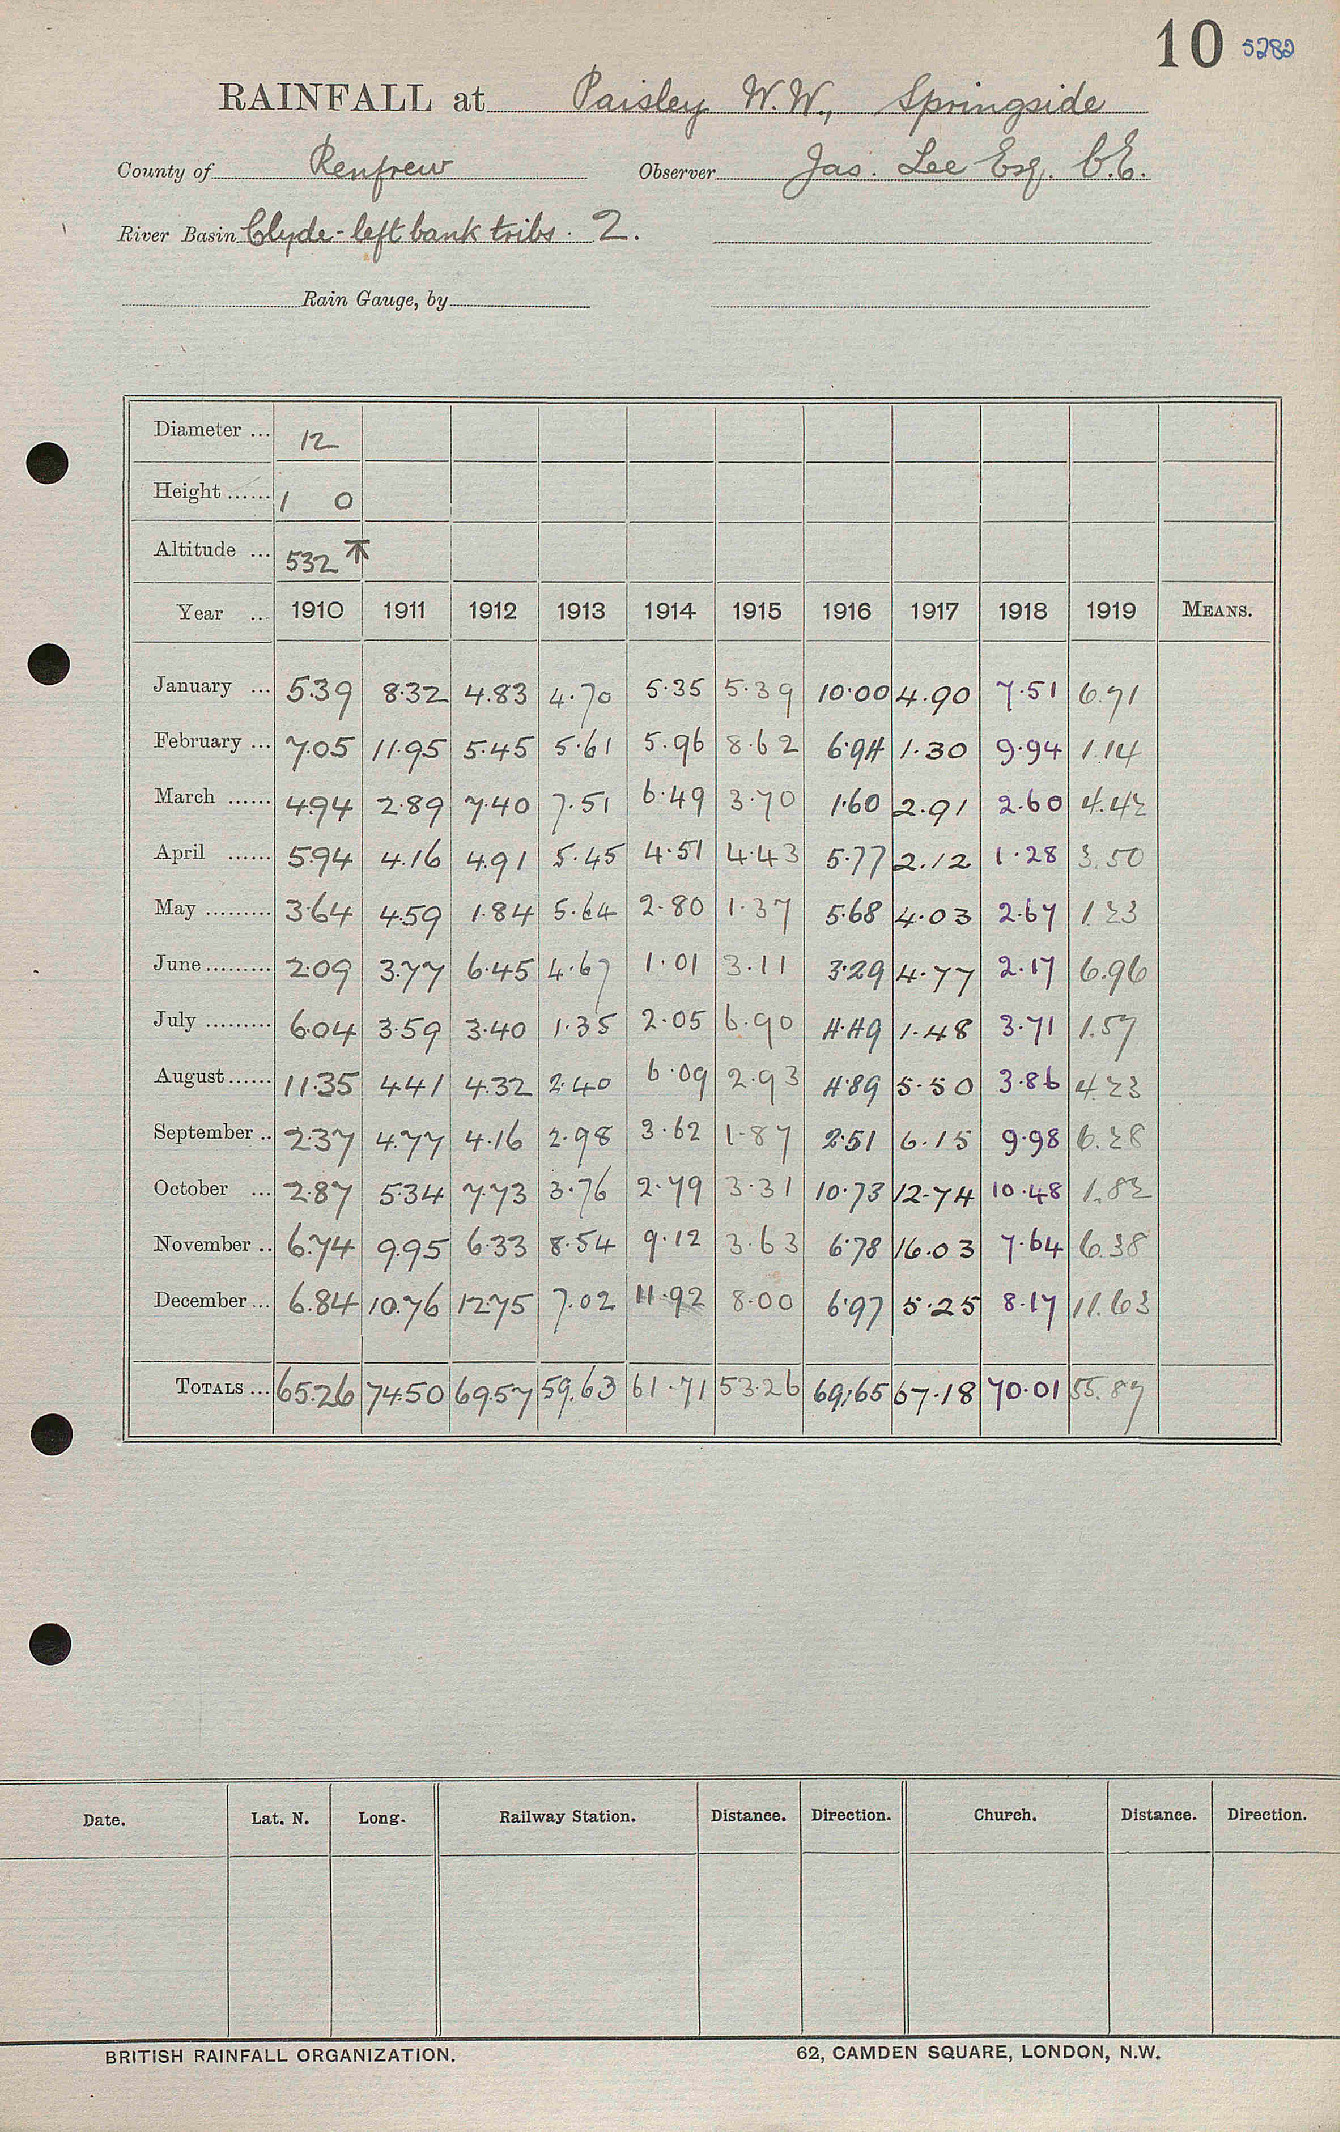 10 5282
RAINFALL at Paisley W.W., Springside
County of Renfrew Observer Jas. Lee Esq. C.E.
River Basin Clyde - left bank tribs. 2.
Rain Gauge, by
Diameter ... 12
Height ...... 1 0
Altitude ... 532
Year ... 1910 1911 1912 1913 1914 1915 1916 1917 1918 1919 MEANS.
January ... 5.39 8.32 4.83 4.70 5.35 5.39 10.00 4.90 7.51 6.71
February ... 7.05 11.95 5.45 5.61 5.96 8.62 6.94 1.30 9.94 1.14
March ...... 4.94 2.89 7.40 7.51 6.49 3.70 1.60 2.91 2.60 4.42
April ...... 5.94 4.16 4.91 5.45 4.51 4.43 5.77 2.12 1.28 3.50
May ......... 3.64 4.59 1.84 5.64 2.80 1.37 5.68 4.03 2.67 1.23
June ......... 2.09 3.77 6.45 4.67 1.01 3.11 3.29 4.77 2.17 6.96
July ......... 6.04 3.59 3.40 1.35 2.05 6.90 4.49 1.48 3.71 1.57
August ...... 11.35 4.41 4.32 2.40 6.09 2.93 4.89 5.50 3.86 4.23
September .. 2.37 4.77 4.16 2.98 3.62 1.87 2.51 6.15 9.98 6.28
October ... 2.87 5.34 7.73 3.76 2.79 3.31 10.73 12.74 10.48 1.82
November .. 6.74 9.95 6.33 8.54 9.12 3.63 6.78 16.03 7.64 6.38
December ... 6.84 10.76 12.75 7.02 11.92 8.00 6.97 5.25 8.17 11.63
TOTALS ... 65.26 74.50 69.57 59.63 61.71 53.26 69.65 67.18 70.01 55.87
Date. Lat. N. Long. Railway Station. Distance. Direction. Church. Distance. Direction.
BRITISH RAINFALL ORGANIZATION. 62, CAMDEN SQUARE, LONDON, N.W.